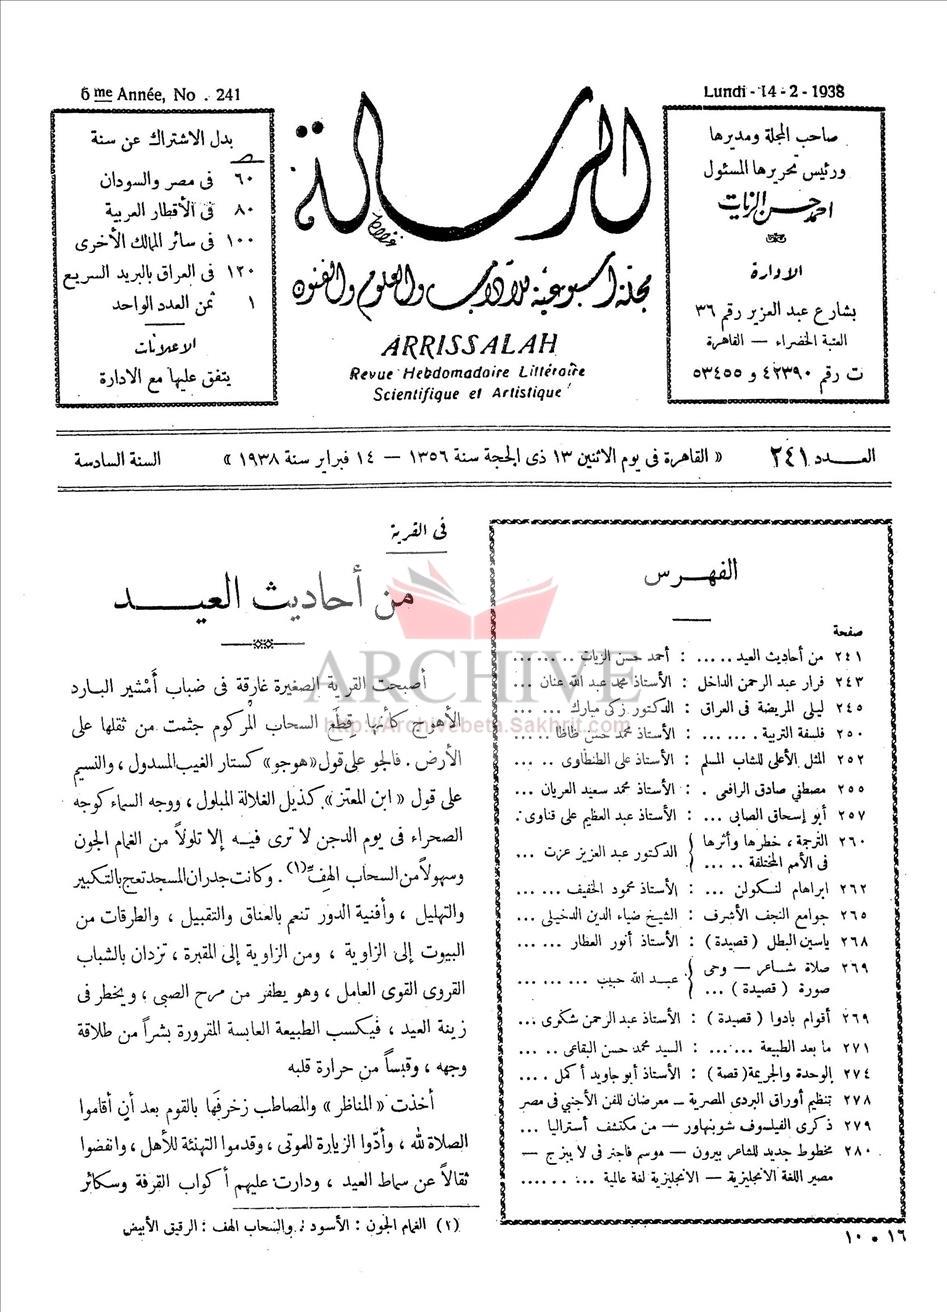 6me Année, No . 241
Lundi - 14 - 2 - 1938
صاحب المجلة ومديرها
ورئيس تحريرها المسئول
احمد حسن الزيات
الادارة
بشارع عبد العزيز رقم ٣٦
العتبة الخضراء — القاهرة
ت رقم ٤٢٣٩٠ و ٥٣٤٥٥
الرسالة
مجلة أسبوعية للآداب والعلوم والفنون
ARRISSALAH
Revue Hebdomadaire Littéraire
Scientifique et Artistique
بدل الاشتراك عن سنة
٦٠ فى مصر والسودان
٨٠ فى الأقطار العربية
١٠٠ فى سائر الممالك الأخرى
١٢٠ فى العراق بالبريد السريع
١ ثمن العدد الواحد
الاعلانات
يتفق عليها مع الادارة
العــدد ٢٤١
« القاهرة فى يوم الاثنين ١٣ ذى الحجة سنة ١٣٥٦ — ١٤ فبراير سنة ١٩٣٨ »
السنة السادسة
الفهــرس
صفحة
٢٤١ من أحاديث العيد .. ... : أحمد حسن الزيات .. ... ...
٢٤٣ فرار عبد الرحمن الداخل : الأستاذ محمد عبد الله عنان ...
٢٤٥ ليلى المريضة فى العراق : الدكتور زكى مبارك .. ... ...
٢٥٠ فلسفة التربية . ... ... : الأستاذ محمد حسن ظاظا ... ...
٢٥٢ المثل الأعلى للشاب المسلم : الأستاذ على الطنطاوى .. ...
٢٥٥ مصطفى صادق الرافعى . : الأستاذ محمد سعيد العريان ...
٢٥٧ أبو إسحاق الصابى ... : الأستاذ عبد العظيم على قناوى .
٢٦٠ الترجمة ، خطرها وأثرها
فى الأمم المختلفة .. ... } الدكتور عبد العزيز عزت ...
٢٦٢ ابراهام لنكولن ... : الأستاذ محمود الخفيف ... ...
٢٦٥ جوامع النجف الأشرف : الشيخ ضياء الدين الدخيلى ...
٢٦٨ ياسين البطل ( قصيدة ) : الأستاذ أنور العطار ... ...
٢٦٩ صلاة شـاعر — وحى
صورة ( قصيدة ) ... } عبـد الله حبيب ... ... ...
٢٦٩ أقوام بادوا ( قصيدة ) : الأستاذ عبد الرحمن شكرى ...
٢٧١ ما بعد الطبيعة ... ... : السيد محمد حسن البقاعى .. ...
٢٧٤ الوحدة والجريمة ( قصة ) : الأستاذ أبو جاويد أكمل . ...
٢٧٨ تنظيم أوراق البردى المصرية — معرضان للفن الأجنبى فى مصر
٢٧٩ ذكرى الفيلسوف شوبنهاور — من مكتشف أستراليا ...
٢٨٠ مخطوط جديد للشاعر بيرون — موسم فاجنر فى لايبزج —
مصير اللغة الانجليزية — الانجليزية لغة عالمية .. ... ...
١٦ • ١٠
فى القرية
من أحاديث العيـــد
أصبحت القرية الصغيرة غارقة فى ضباب أمْشير البارد
الأهوج كأنها قِطع السحاب المركوم جثمت من ثقلها على
الأرض . فالجو على قول «هوجو» كستار الغيب المسدول ، والنسيم
على قول « ابن المعتز » كذيل الغلالة المبلول ، ووجه السماء كوجه
الصحراء فى يوم الدجن لا ترى فيــه إلا تلولاً من الغمام الجون
وسهولاً من السحاب الهِفّ(١) . وكانت جدران المسجد تعج بالتكبير
والتهليل ، وأفنية الدور تنعم بالعناق والتقبيل ، والطرقات من
البيوت إلى الزاوية ، ومن الزاوية إلى المقبرة ، تزدان بالشباب
القروى القوى العامل ، وهو يطفر من مرح الصبى ؛ ويخطر فى
زينة العيد ، فيكسب الطبيعة العابسة المقرورة بشراً من طلاقة
وجهه ، وقبساً من حرارة قلبه
أخذت « المناظر » والمصاطب زخرفَها بالقوم بعد أن أقاموا
الصلاة لله ، وأدّوا الزيارة للموتى ، وقدموا التهنئة للأهل ، وانفضوا
ثقالاً عن سماط العيد ، ودارت عليهم أكواب القرفة وسكائر
(١) الغمام الجون : الأسود ، والسحاب الهف : الرقيق الأبيض
ARCHIVE
http://Archivebeta.Sakhrit.com